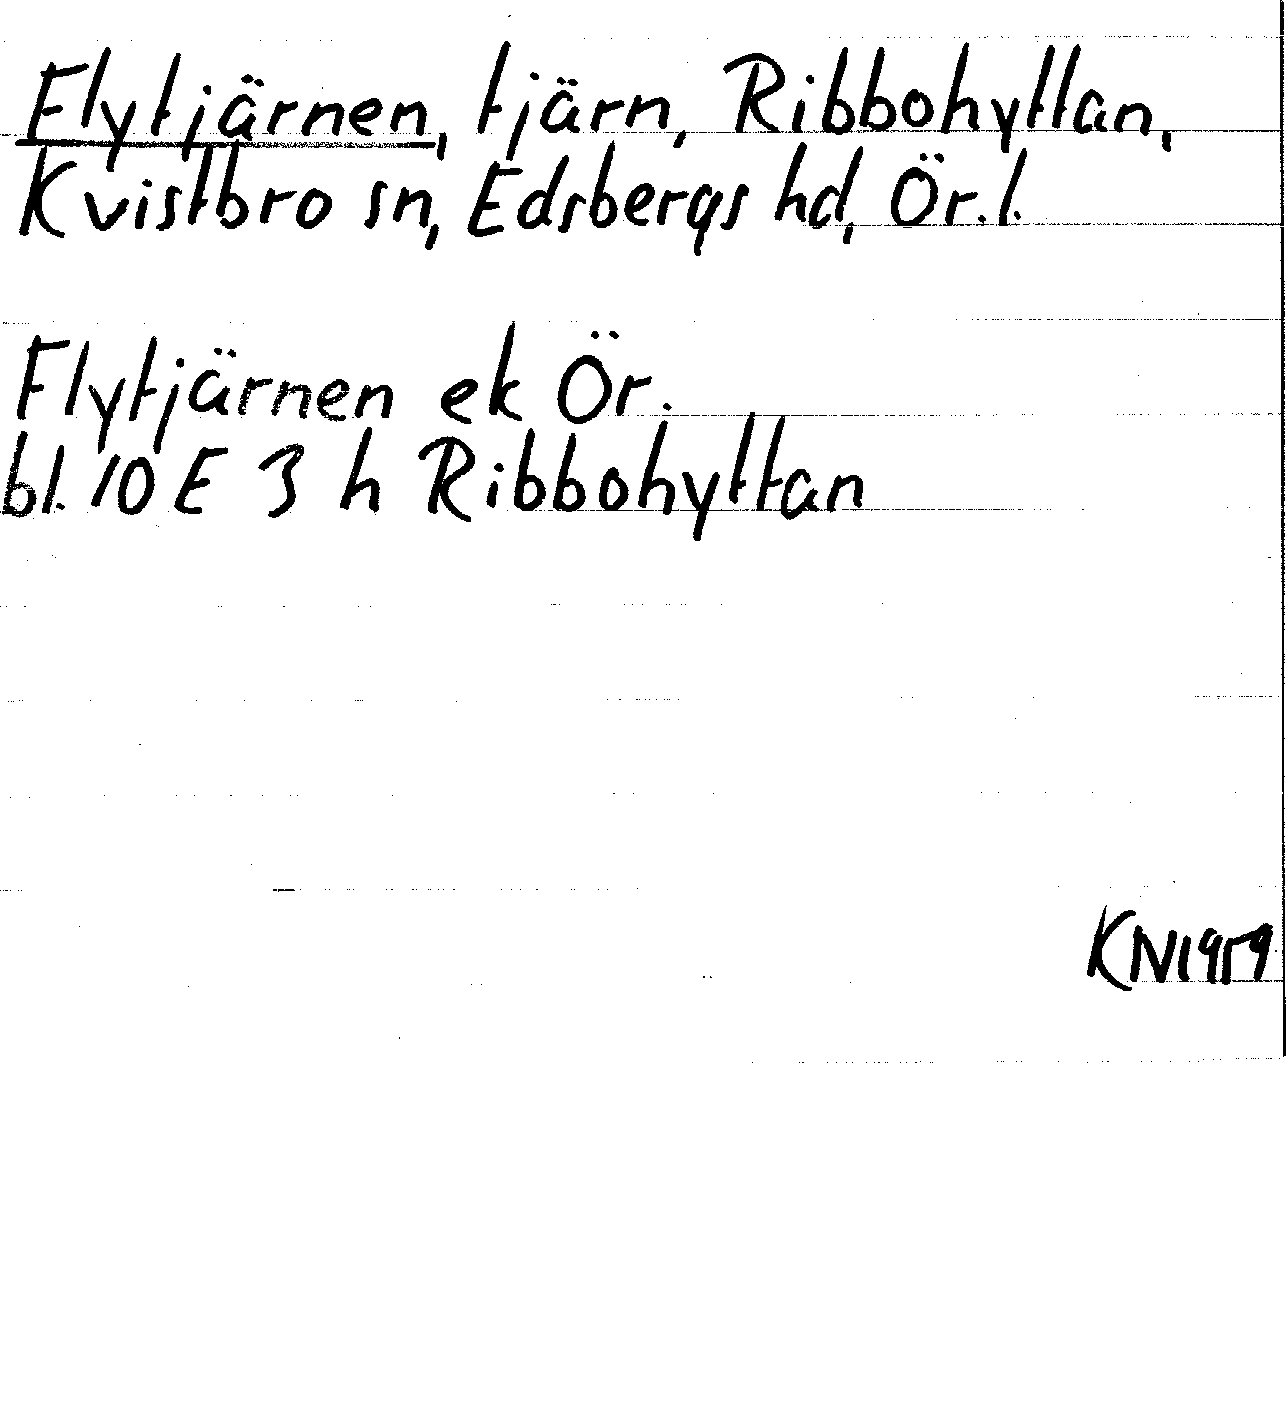 Flytjärnen, tjärn, Ribbohyttan,
Kvistbro sn, Edsbergs hd, Ör. l.
Flytjärnen ek Ör.
bl. 10 E 3 h Ribbohyttan
KN1959